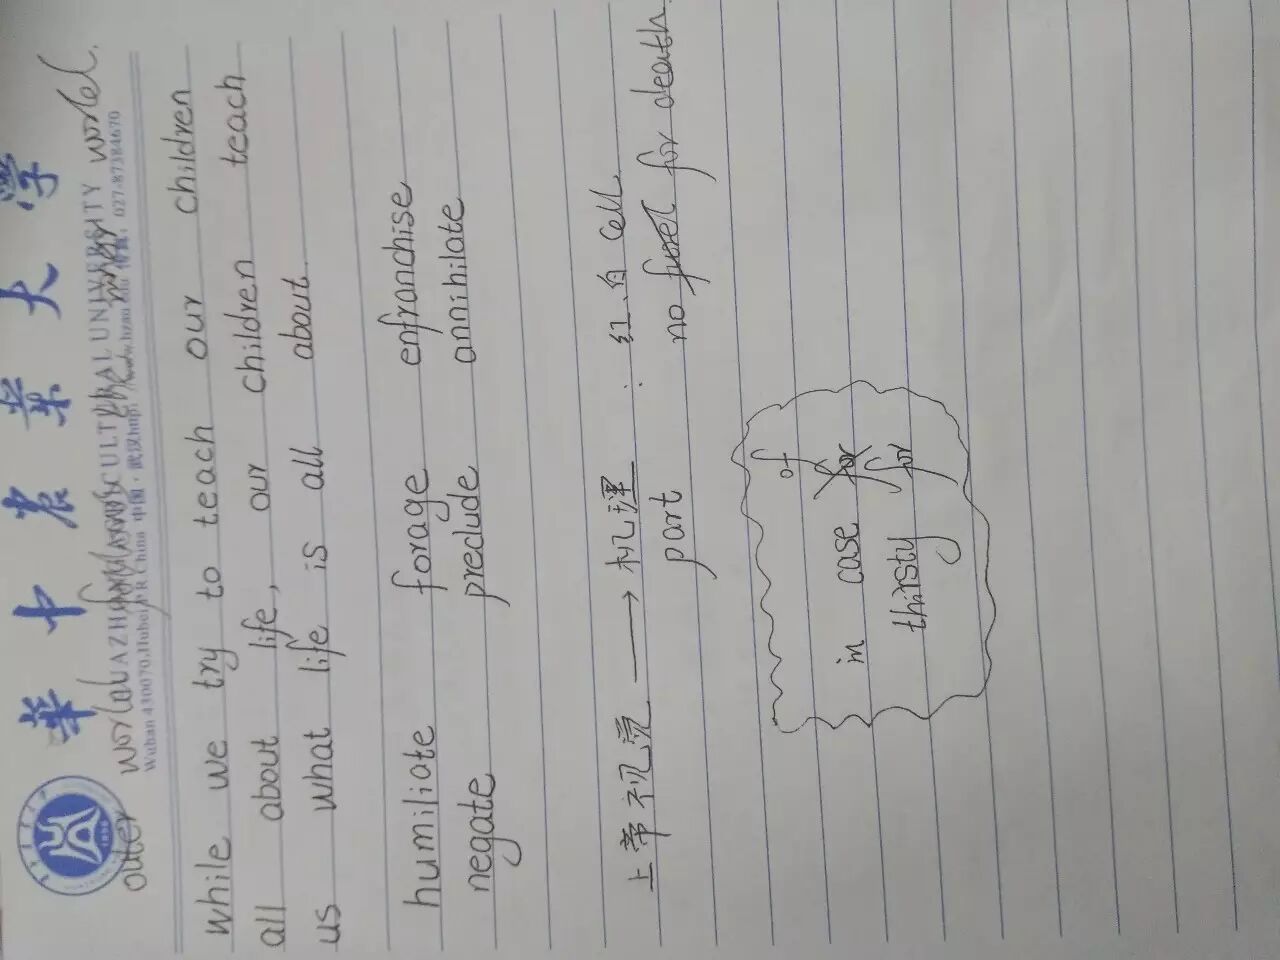 華中農業大学
HUAZHONG AGRICULTURAL UNIVERSITY
Wuhan 430070,Hubei,P.R China 中国·武汉 027-87384670
outer world inner world.
while we try to teach our children
all about life, our children teach
us what life is all about
humiliate forage enfranchise
negate preclude annihilate
上帝视觉 → 机理 : 红、白 cell
part no for death
of
in case for
thirsty for